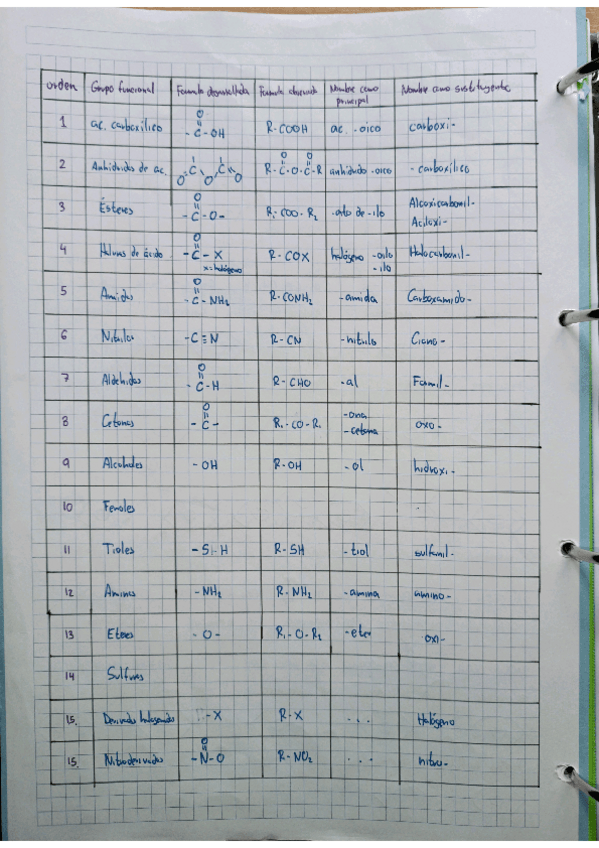 orden Grupo funcional Fórmula desarrollada Fórmula abreviada Nombre como principal Nombre como sustituyente
1 ac. carboxílico -C-OH O R-COOH ac. -oico carboxi-
2 Anhídridos de ac. C C O O O R-C-O-C-R O O anhídrido -oico -carboxílico
3 Ésteres -C-O- O R1-COO-R2 -ato de -ilo Alcoxicarbonil- Aciloxi-
4 Haluros de ácido -C-X O x=halógeno R-COX halógeno -oilo -ilo Halocarbonil-
5 Amidas -C-NH2 O R-CONH2 -amida Carboxamido-
6 Nitrilos -C≡N R-CN -nitrilo Ciano-
7 Aldehidos -C-H O R-CHO -al Formil-
8 Cetonas -C- O R1-CO-R2 -ona -cetona oxo-
9 Alcoholes -OH R-OH -ol hidroxi-
10 Fenoles
11 Tioles -S-H R-SH -tiol sulfanil-
12 Aminas -NH2 R-NH2 -amina amino-
13 Eteres -O- R1-O-R2 -eter oxi-
14 Sulfuros
15 Derivados halogenados -X R-X ... Halógeno
15 Nitroderivados -N-O O R-NO2 ... nitro-